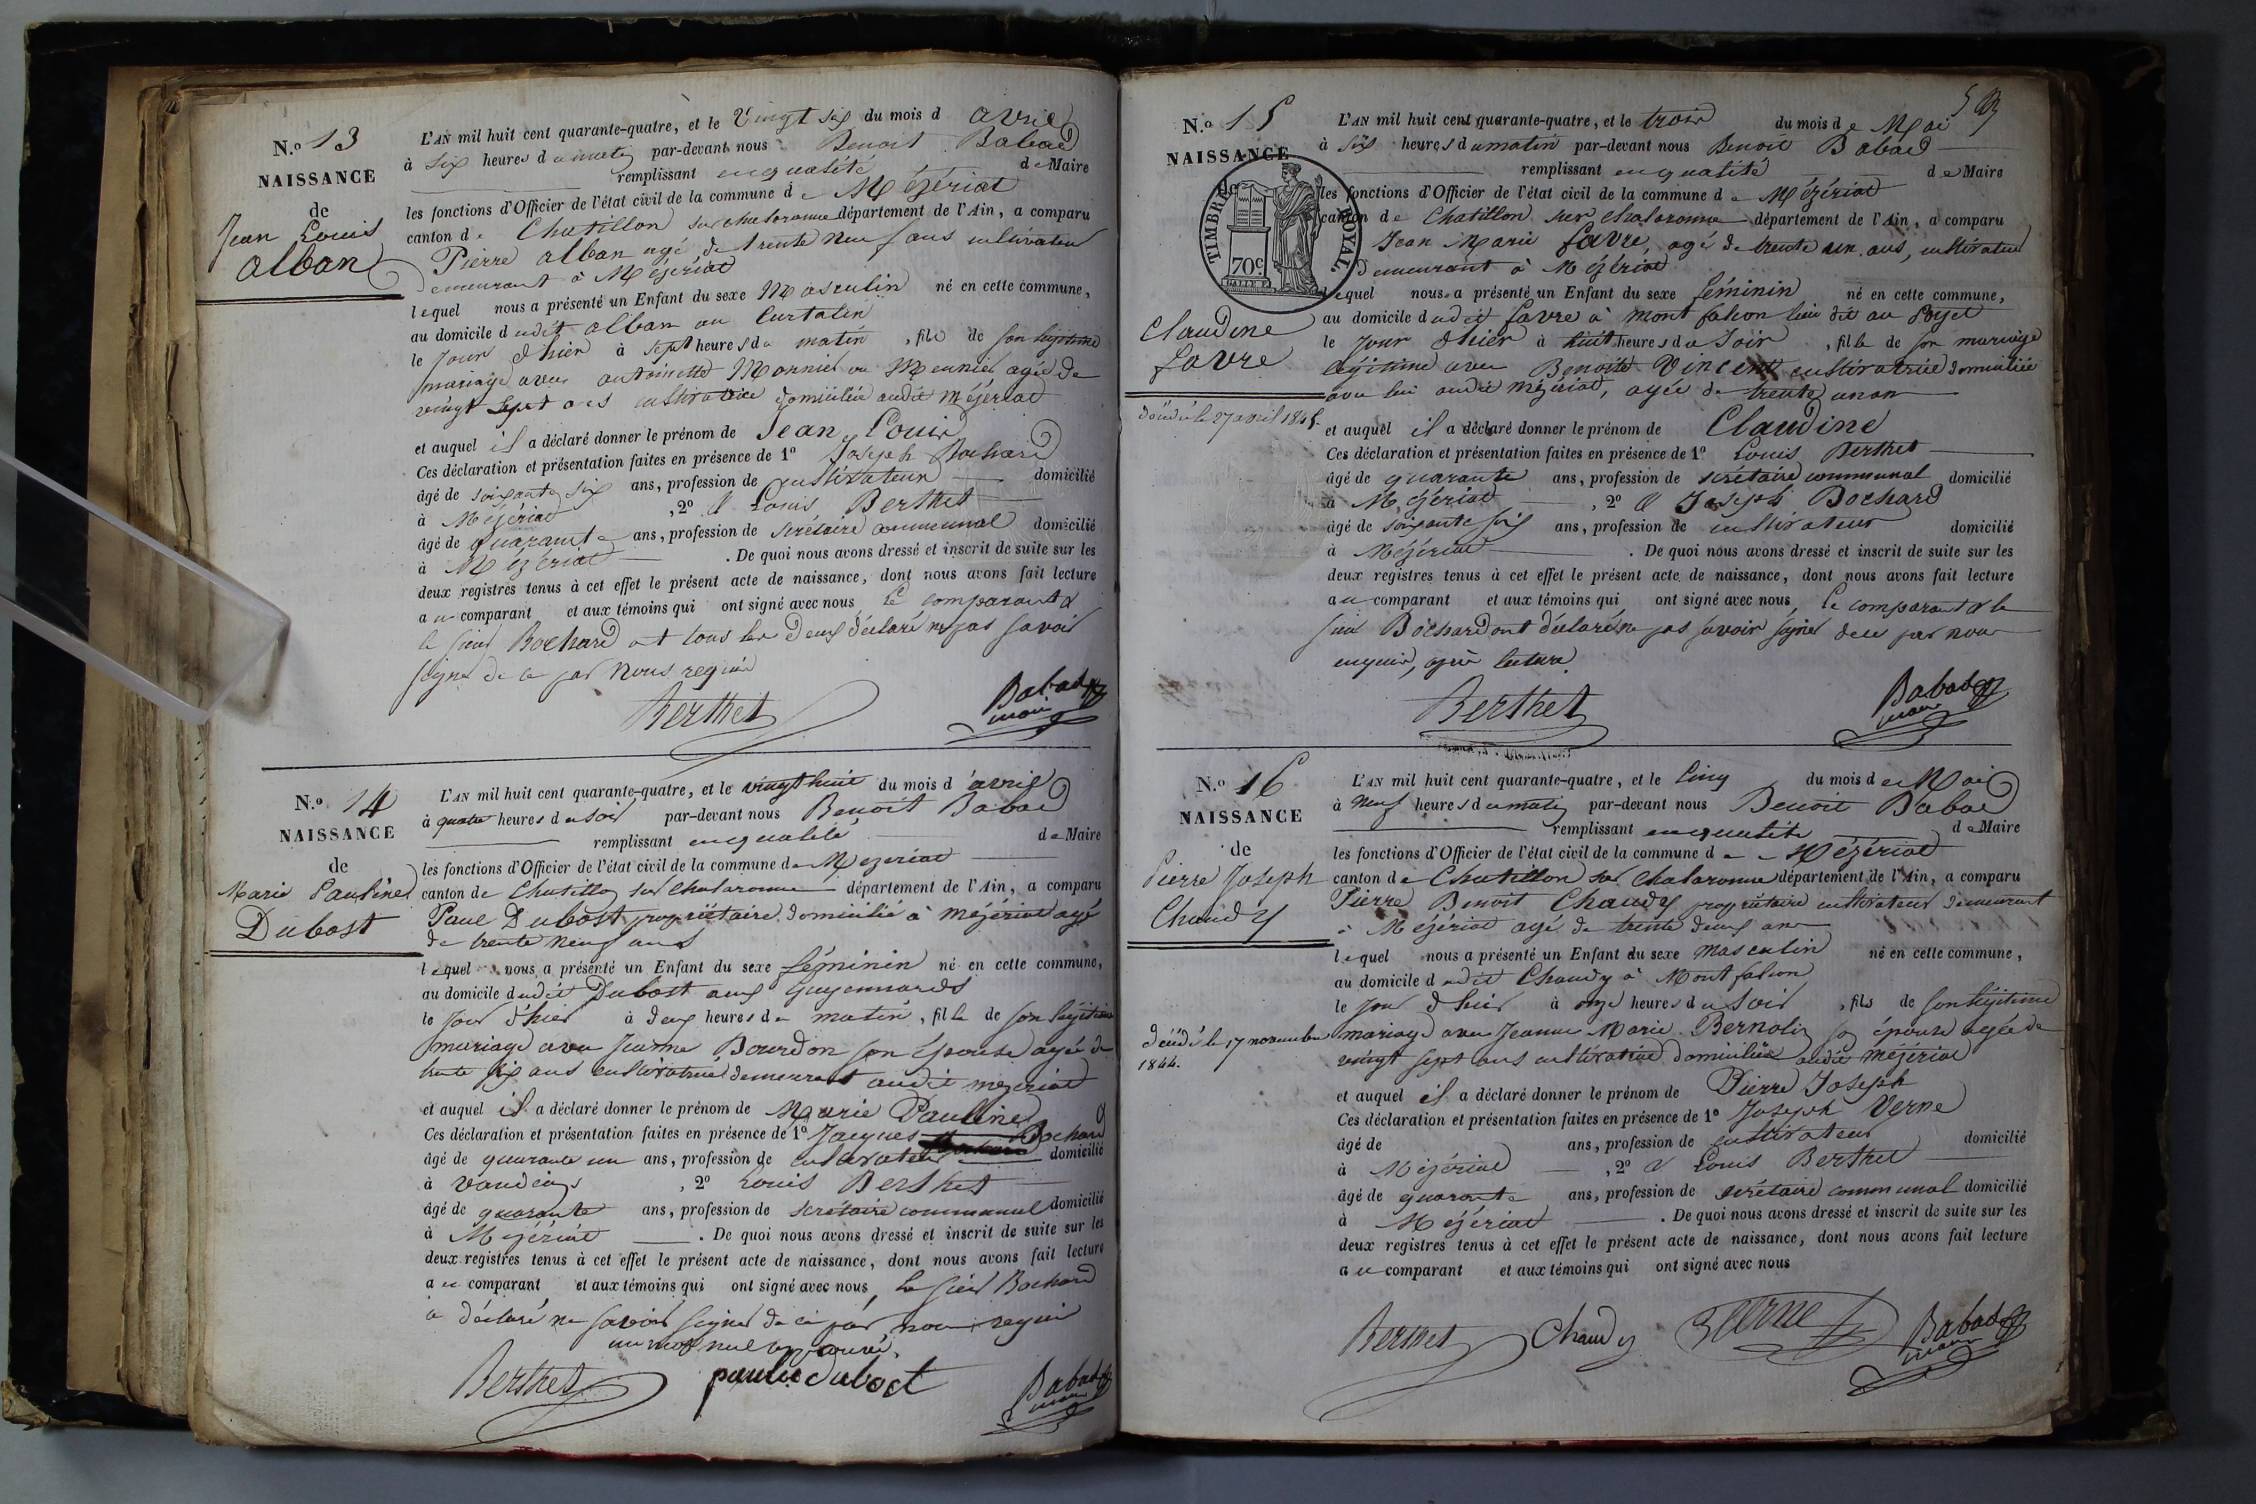 N.o 13
NAISSANCE
de
Jean Louis
alban
L'AN mil huit cent quarante-quatre, et le Vingt six du mois d avril
à six heures du matin par-devant nous Benoit Babad
remplissant en qualité de Maire
les fonctions d'Officier de l'état civil de la commune de Mézériat
canton de Chatillon sur chalaronne département de l'Ain, a comparu
Pierre alban agé de trente neuf ans cultivateur
demeurant à Mézériat
lequel nous a présenté un Enfant du sexe Masculin né en cette commune,
au domicile dudit alban au Curtalin
le jour d'hier à sept heures du matin, fils de son légitime
mariage avec antoinette Monnier ou Meunier agée de
vingt sept ans cultivatrice domiciliée audit mézériat
et auquel il a déclaré donner le prénom de Jean Louis
Ces déclaration et présentation faites en présence de 1o Joseph Bochard
âgé de soixante six ans, profession de cultivateur domicilié
à Mézériat, 2o & Louis Berthet
âgé de quarante ans, profession de secrétaire communal domicilié
à Mézériat. De quoi nous avons dressé et inscrit de suite sur les
deux registres tenus à cet effet le présent acte de naissance, dont nous avons fait lecture
au comparant et aux témoins qui ont signé avec nous, le comparant &
le sieur Bochard ont tous les deux déclaré ne pas savoir
signer de ce par nous requis
Berthet
Babad
maire
N.o 14
NAISSANCE
de
Marie Pauline
Dubost
L'AN mil huit cent quarante-quatre, et le vingt huit du mois d'avril
à quatre heures du soir par-devant nous Benoit Babad
remplissant en qualité de Maire
les fonctions d'Officier de l'état civil de la commune de Mezeriat
canton de Chatillon sur Chalaronne département de l'Ain, a comparu
Paul Dubost propriétaire domicilié à mézériat agé
de trente neuf ans
lequel nous a présenté un Enfant du sexe féminin né en cette commune,
au domicile dudit Dubost aux Guyennards
le jour d'hier à deux heures du matin, fille de son légitime
mariage avec Jeanne Bourdon son épouse agée de
trente six ans cultivatrice demeurant audit mezeriat
et auquel il a déclaré donner le prénom de Marie Pauline
Ces déclaration et présentation faites en présence de 1o Jacques Bochard
âgé de quarante un ans, profession de cultivateur domicilié
à Vandeins, 2o Louis Berthet
âgé de quarante ans, profession de secrétaire communal domicilié
à Mézériat. De quoi nous avons dressé et inscrit de suite sur les
deux registres tenus à cet effet le présent acte de naissance, dont nous avons fait lecture
au comparant et aux témoins qui ont signé avec nous, le sieur Bochard
a déclaré ne savoir signer de ce par nous requis
un mot nul approuvé.
Berthet
paul dubost
Babad
maire
N.o 15
NAISSANCE
de
TIMBRE ROYAL.
70c
Claudine
favre
décédée le 27 avril 1845.
L'AN mil huit cent quarante-quatre, et le trois du mois de Mai
à six heures du matin par-devant nous Benoit Babad
remplissant en qualité de Maire
les fonctions d'Officier de l'état civil de la commune de Mézériat
canton de Chatillon sur chalaronne département de l'Ain, a comparu
Jean Marie favre agé de trente un ans, cultivateur
demeurant à Mézériat
lequel nous a présenté un Enfant du sexe féminin né en cette commune,
au domicile dudit favre à mont falcon lieu dit au
le jour d'hier à huit heures du soir, fille de son mariage
légitime avec Benoite Vincent cultivatrice domiciliée
avec lui audit mézériat, agée de trente un an
et auquel il a déclaré donner le prénom de Claudine
Ces déclaration et présentation faites en présence de 1o Louis Berthet
âgé de quarante ans, profession de secrétaire communal domicilié
à Mézériat, 2o & Joseph Bochard
âgé de soixante six ans, profession de cultivateur domicilié
à Mézériat. De quoi nous avons dressé et inscrit de suite sur les
deux registres tenus à cet effet le présent acte de naissance, dont nous avons fait lecture
au comparant et aux témoins qui ont signé avec nous, le comparant & le
sieur Bochard ont déclaré ne pas savoir signer de ce par nous
enquis, après lecture
Berthet
Babad
maire
N.o 16
NAISSANCE
de
Pierre Joseph
Chaudy
décédé le 17 novembre
1844.
L'AN mil huit cent quarante-quatre, et le Cinq du mois de Mai
à neuf heures du matin par-devant nous Benoit Babad
remplissant en qualité de Maire
les fonctions d'Officier de l'état civil de la commune de Mézériat
canton de Chatillon sur Chalaronne département de l'Ain, a comparu
Pierre Benoit Chaudy propriétaire cultivateur demeurant
à Mézériat agé de trente deux ans
lequel nous a présenté un Enfant du sexe masculin né en cette commune,
au domicile dudit Chaudy à Mont falcon
le jour d'hier à onze heures du soir, fils de son légitime
mariage avec Jeanne Marie Bernolin son épouse agée de
vingt sept ans cultivatrice domiciliée audit mézériat
et auquel il a déclaré donner le prénom de Pierre Joseph
Ces déclaration et présentation faites en présence de 1o Joseph Verne
âgé de ans, profession de cultivateur domicilié
à Mézériat, 2o & Louis Berthet
âgé de quarante ans, profession de secrétaire communal domicilié
à Mézériat. De quoi nous avons dressé et inscrit de suite sur les
deux registres tenus à cet effet le présent acte de naissance, dont nous avons fait lecture
au comparant et aux témoins qui ont signé avec nous
Berthet
Chaudy
Verne
Babad
maire